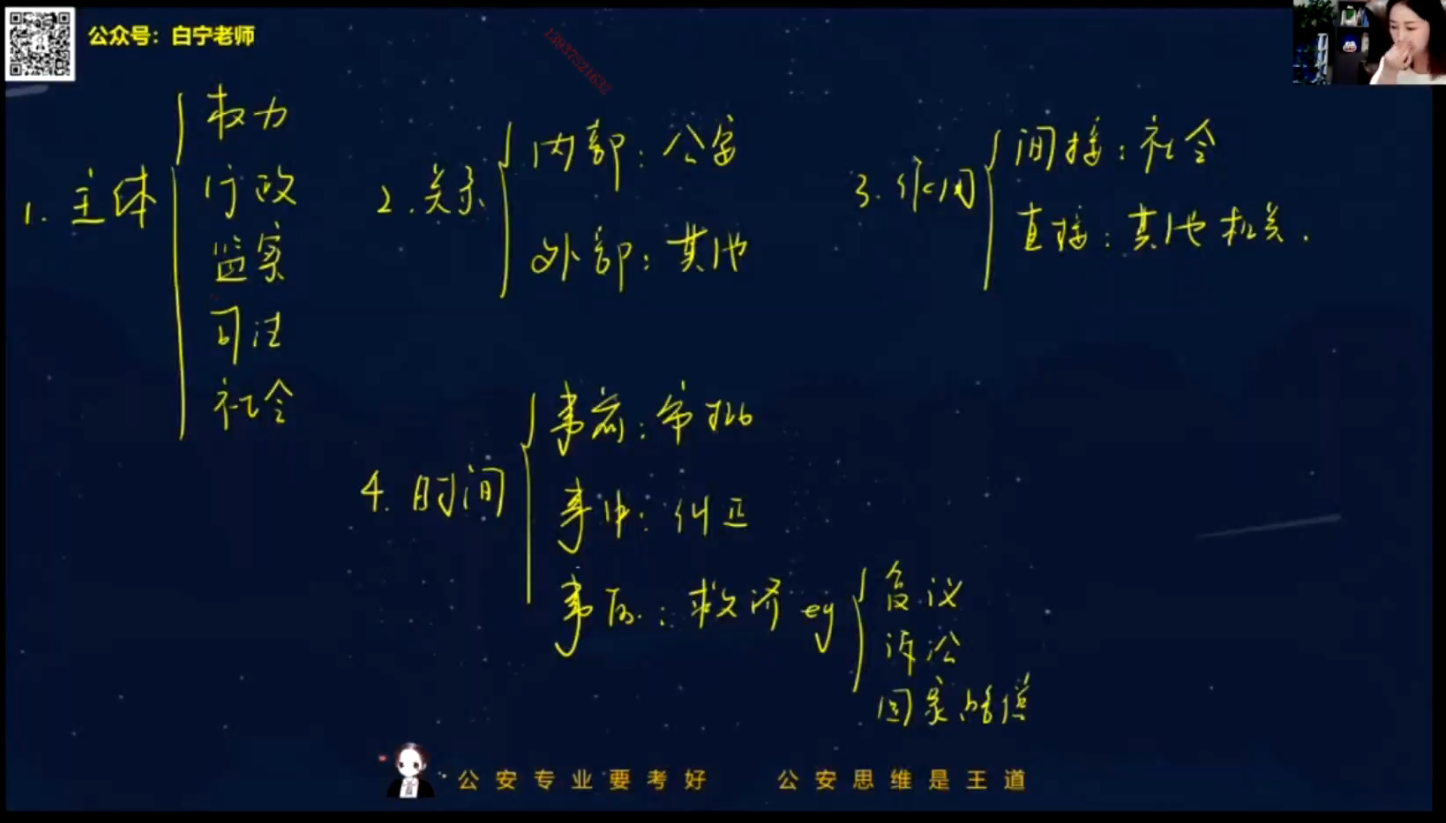 公众号：白宁老师
13937521632
1. 主体
权力
行政
监察
司法
社会
2. 关系
内部：公安
外部：其他
3. 作用
间接：社会
直接：其他机关.
4. 时间
事前：审批
事中：纠正
事后：救济 eg
复议
诉讼
国家赔偿
公安专业要考好 公安思维是王道